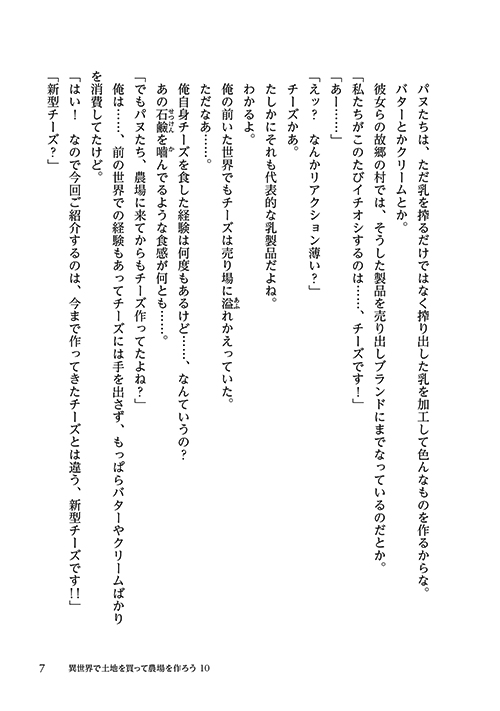 パヌたちは、ただ乳を搾るだけではなく搾り出した乳を加工して色んなものを作るからな。
バターとかクリームとか。
彼女らの故郷の村では、そうした製品を売り出しブランドにまでなっているのだとか。
「私たちがこのたびイチオシするのは……、チーズです！」
「あー……」
「えッ？　なんかリアクション薄い？」
チーズかあ。
たしかにそれも代表的な乳製品だよね。
わかるよ。
俺の前いた世界でもチーズは売り場に溢れかえっていた。
ただなあ……。
俺自身チーズを食した経験は何度もあるけど……、なんていうの？
あの石鹸を噛んでるような食感が何とも……。
「でもパヌたち、農場に来てからもチーズ作ってたよね？」
俺は……、前の世界での経験もあってチーズには手を出さず、もっぱらバターやクリームばかり
を消費してたけど。
「はい！　なので今回ご紹介するのは、今まで作ってきたチーズとは違う、新型チーズです!!」
「新型チーズ？」
7　異世界で土地を買って農場を作ろう 10